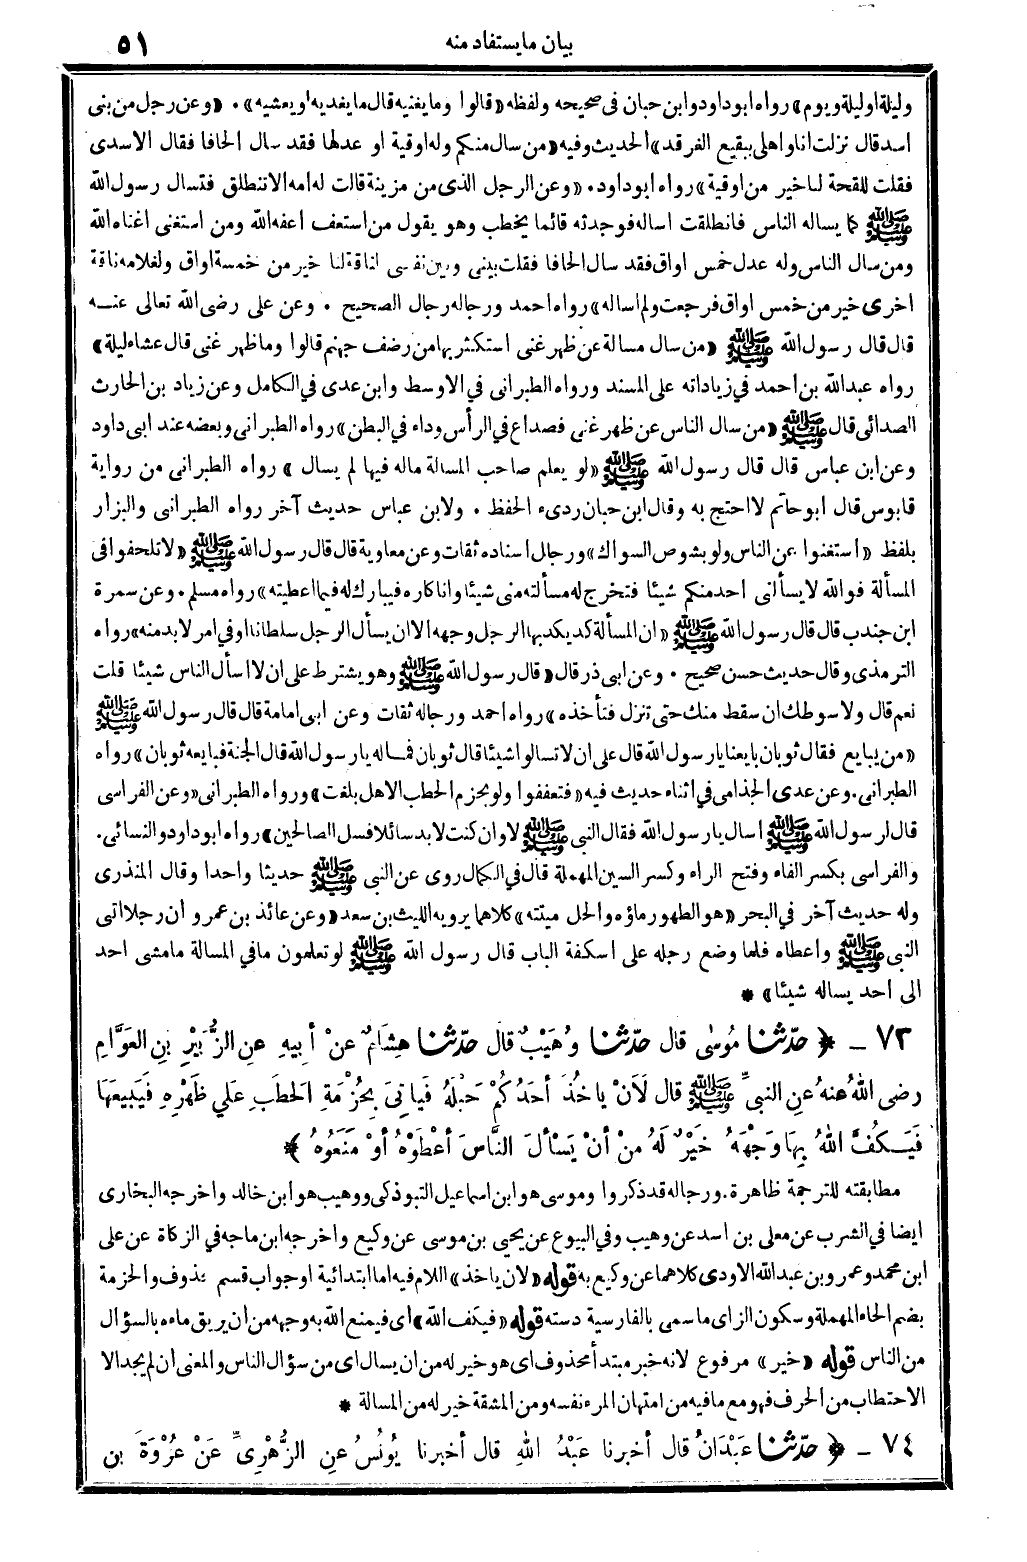 بيان مايستفاد منه
٥١
وليلة اوليلة ويوم» رواه ابوداود وابن حبان فى صحيحه ولفظه «قالوا وما يغنيه قال ما يغديه او يعشيه» . «وعن رجل من بنى
اسد قال نزلت انا واهلى ببقيع الغرقد» الحديث وفيه «من سال منكم وله اوقية او عدلها فقد سال الحافا فقال الاسدى
فقلت للقحة لنا خير من اوقية» رواه ابوداود. «وعن الرجل الذى من مزينة قالت له امه الا تنطلق فتسال رسول الله
ﷺ كما يساله الناس فانطلقت اساله فوجدته قائما يخطب وهو يقول من استعف اعفه الله ومن استغنى اغناه الله
ومن سال الناس وله عدل خمس اواق فقد سال الحافا فقلت بينى وبين نفسى لناقة لنا خير من خمسة اواق ولغلامه ناقة
اخرى خير من خمس اواق فرجعت ولم اساله» رواه احمد ورجاله رجال الصحيح . وعن على رضى الله تعالى عنه
قال قال رسول الله ﷺ «من سال مسالة عن ظهر غنى استكثر بها من رضف جهنم قالوا وما ظهر غنى قال عشاء ليلة»
رواه عبدالله بن احمد في زياداته على المسند ورواه الطبرانى في الاوسط وابن عدى في الكامل وعن زياد بن الحارث
الصدائى قال ﷺ «من سال الناس عن ظهر غنى فصداع في الرأس وداء في البطن» رواه الطبرانى وبعضه عند ابى داود
وعن ابن عباس قال قال رسول الله ﷺ «لو يعلم صاحب المسالة ماله فيها لم يسال» رواه الطبرانى من رواية
قابوس قال ابو حاتم لا احتج به وقال ابن حبان ردىء الحفظ . ولابن عباس حديث آخر رواه الطبرانى والبزار
بلفظ «استغنوا عن الناس ولو بشوص السواك» ورجال اسناده ثقات وعن معاوية قال قال رسول الله ﷺ «لا تلحفوا فى
المسألة فوالله لا يسألنى احد منكم شيئا فتخرج له مسألته منى شيئا وانا كاره فيبارك له فيما اعطيته» رواه مسلم . وعن سمرة
ابن جندب قال قال رسول الله ﷺ «ان المسألة كد يكد بها الرجل وجهه الا ان يسأل الرجل سلطانا او في امر لا بد منه» رواه
الترمذى وقال حديث حسن صحيح . وعن ابى ذر قال «قال رسول الله ﷺ وهو يشترط على ان لا اسأل الناس شيئا قلت
نعم قال ولا سوطك ان سقط منك حتى تنزل فتأخذه» رواه احمد ورجاله ثقات وعن ابى امامة قال قال رسول الله ﷺ
«من يبايع فقال ثوبان بايعنا يا رسول الله قال على ان لا تسالوا شيئا قال ثوبان فماله يا رسول الله قال الجنة فبايعه ثوبان» رواه
الطبرانى . وعن عدى الجذامى في اثناء حديث فيه «فتعففوا ولو بحزم الحطب الا هل بلغت» ورواه الطبرانى «وعن الفراسى
قال لرسول الله ﷺ اسال يا رسول الله فقال النبى ﷺ لا وان كنت لا بد سائلا فسل الصالحين» رواه ابوداود والنسائى .
والفراسى بكسر الفاء وفتح الراء وكسر السين المهملة قال في الكمال روى عن النبى ﷺ حديثا واحدا وقال المنذرى
وله حديث آخر في البحر «هو الطهور ماؤه والحل ميتته» كلاهما يرويه الليث بن سعد «وعن عائذ بن عمرو ان رجلا اتى
النبى ﷺ واعطاه فلما وضع رجله على اسكفة الباب قال رسول الله ﷺ لو تعلمون ما في المسالة ما مشى احد
الى احد يساله شيئا» *
٧٣ ـ ﴿ حدّثنا مُوسٰى قال حدّثنا وُهَيْبٌ قال حدّثنا هِشَامٌ عنْ أبِيهِ عنِ الزُّبَيْرِ بنِ العَوَّامِ
رضى اللهُ عنهُ عنِ النبىِّ ﷺ قال لَأَنْ ياخُذَ أحَدُكُمْ حَبْلَهُ فَياتِىَ بِحُزْمَةِ الحَطبِ عَلي ظَهْرِهِ فَيَبيعَهَا
فَيَكُفَّ اللهُ بِهَا وَجْهَهُ خَيْرٌ لَهُ منْ أنْ يَسْألَ النَّاسَ أعْطَوْهُ أوْ مَنَعُوهُ ﴾ *
مطابقته للترجمة ظاهرة . ورجاله قد ذكروا وموسى هو ابن اسماعيل التبوذكى ووهيب هو ابن خالد واخرجه البخارى
ايضا في الشرب عن معلى بن اسد عن وهيب وفي البيوع عن يحيى بن موسى عن وكيع واخرجه ابن ماجه في الزكاة عن على
ابن محمد وعمرو بن عبدالله الاودى كلاهما عن وكيع به قوله «لان ياخذ» اللام فيه اما ابتدائية او جواب قسم محذوف والحزمة
بضم الحاء المهملة وسكون الزاى ما سمى بالفارسية دسته قوله «فيكف الله» اى فيمنع الله به وجهه من ان يريق ماءه بالسؤال
من الناس قوله «خير» مرفوع لانه خبر مبتدأ محذوف اى هو خير له من ان يسال اى من سؤال الناس والمعنى ان لم يجد الا
الاحتطاب من الحرف فهو مع ما فيه من امتهان المرء نفسه ومن المشقة خير له من المسالة *
٧٤ ـ ﴿ حدّثنا عَبْدَانُ قال أخبرنا عَبْدُ اللهِ قال أخبرنا يُونُسُ عنِ الزُّهْرِىِّ عَنْ عُرْوَةَ بنِ